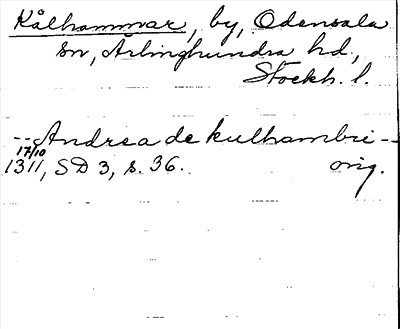 Kålhammar, by, Odensala
sn, Ärlinghundra hd,
Stockh. l.
-- Andrea de kulhambri --
17/10
1311, SD 3, s. 36. orig.